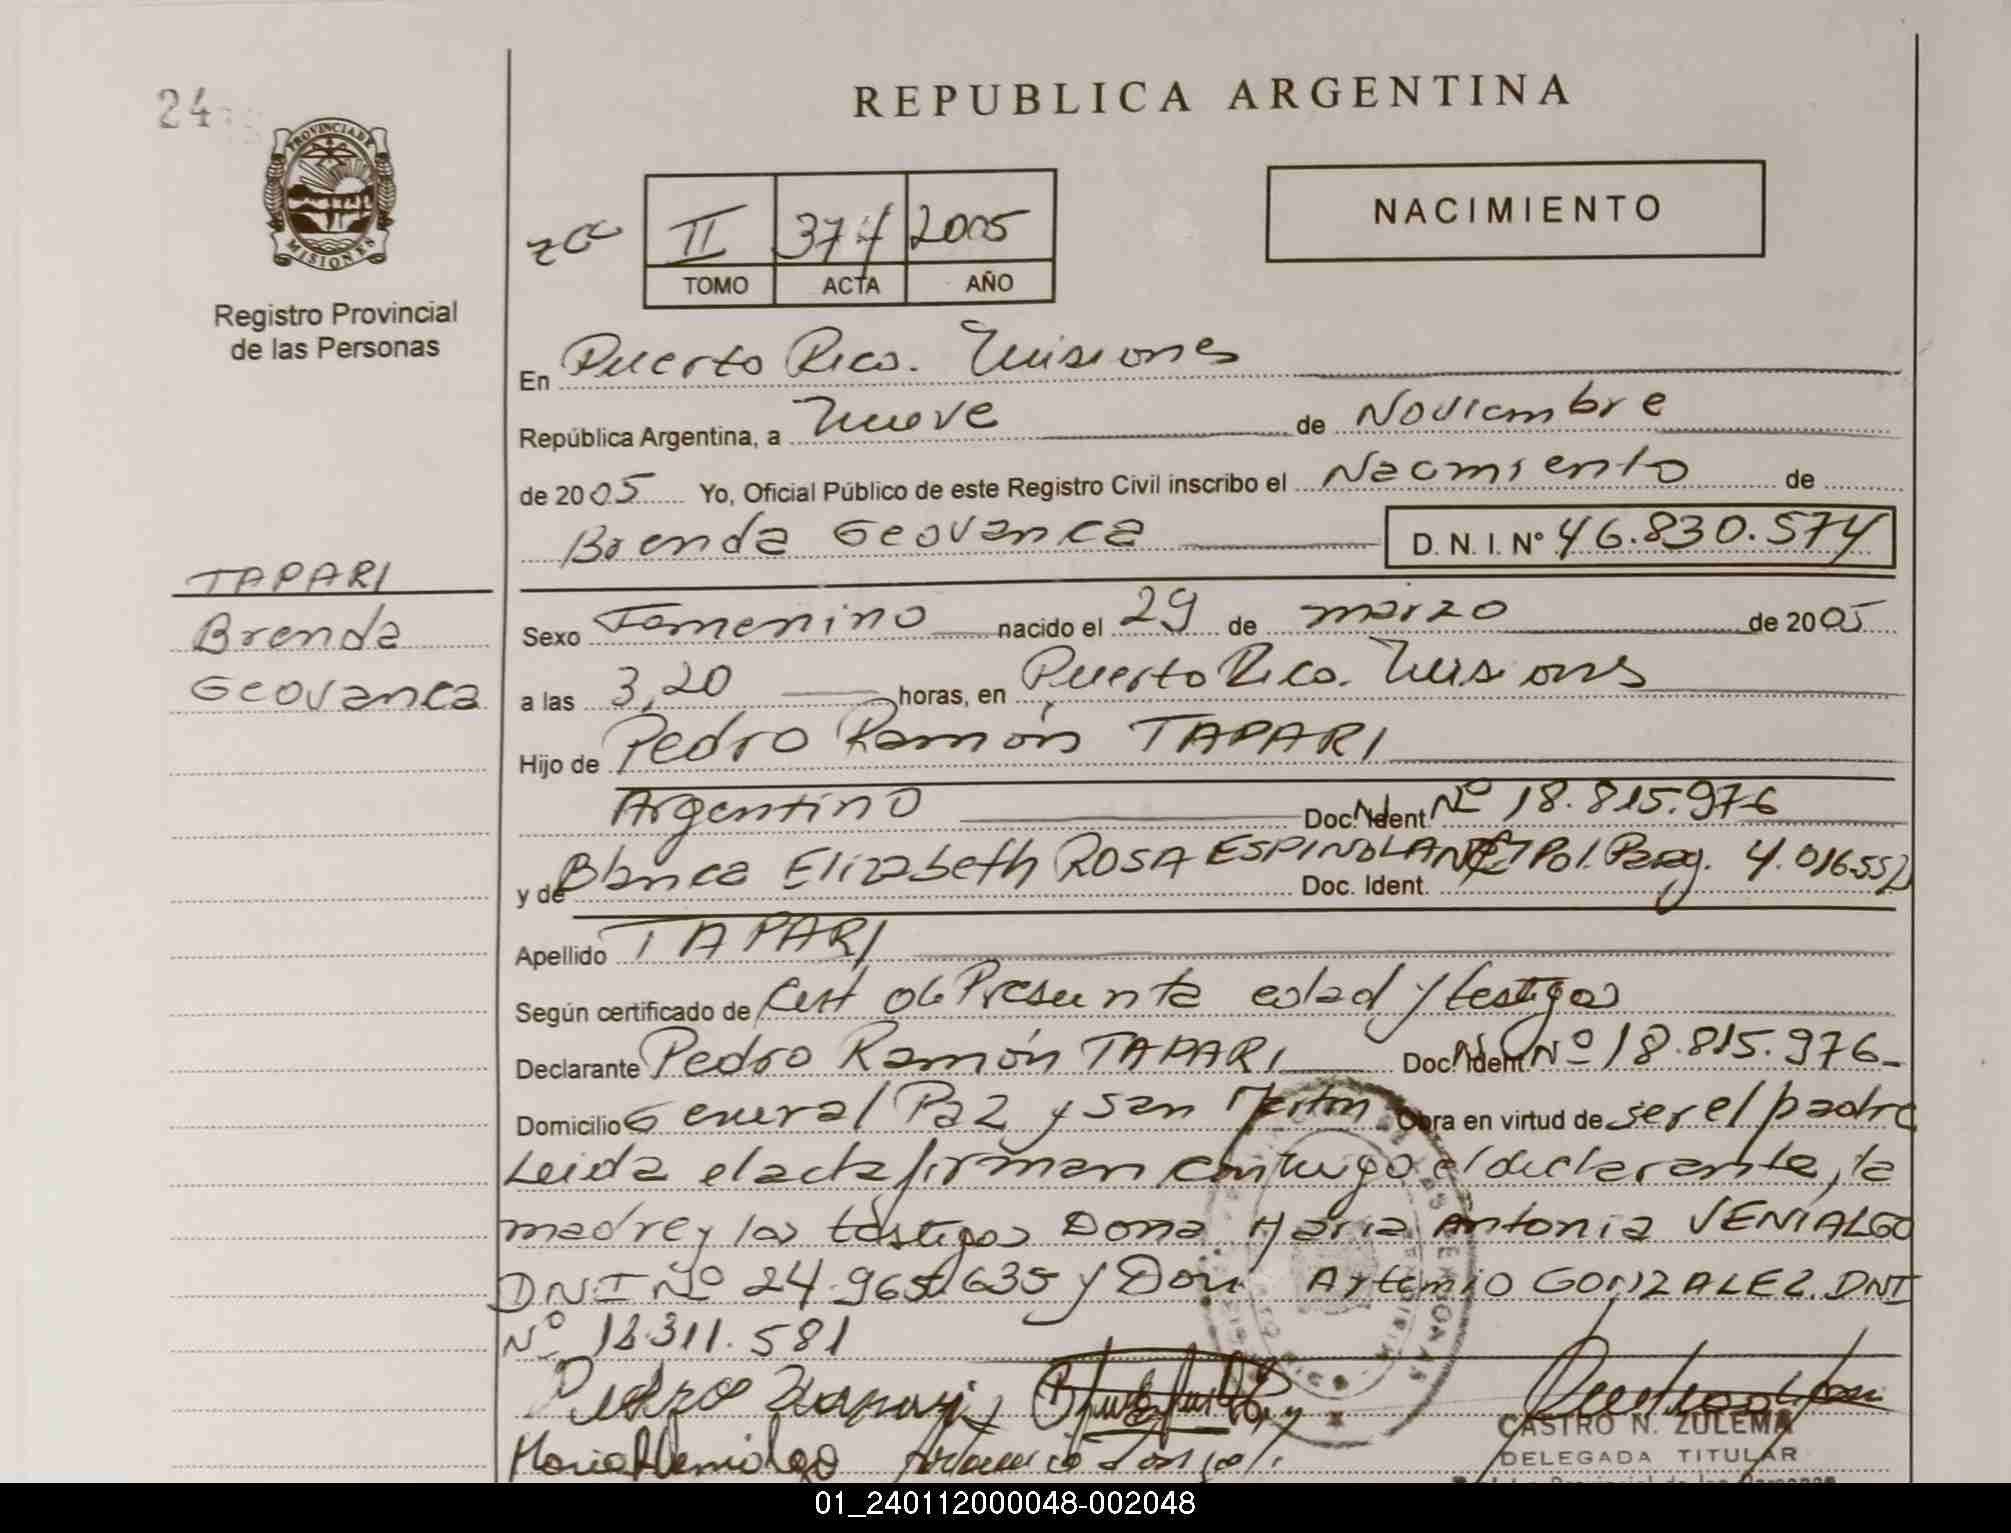 REPUBLICA ARGENTINA
24
PROVINCIA DE
MISIONES
Registro Provincial
de las Personas
II 374 2005
TOMO ACTA AÑO
NACIMIENTO
En Puerto Rico. Misiones
República Argentina, a Nueve de Noviembre
de 2005 Yo, Oficial Público de este Registro Civil inscribo el Nacimiento de
Brenda Geovanca D. N. I. Nº 46.830.574
TAPARI
Brenda
Geovanca
Sexo Femenino nacido el 29 de marzo de 2005
a las 3,20 horas, en Puerto Rico. Misiones
Hijo de Pedro Ramón TAPARI
Argentino Doc. Ident. Nº 18.815.976
y de Blanca Elizabeth ROSA ESPINOLA Doc. Ident. Pol. Parag. 4.016.552
Apellido TAPARI
Según certificado de Cert de Presunta edad y testigos
Declarante Pedro Ramón TAPARI Doc. Ident. Nº 18.815.976
Domicilio General Paz y San Martin Obra en virtud de ser el padre
Leida el acta firman conmigo el declarante, la
madre y los testigos Dona Maria Antonia VENIALGO
DNI Nº 24.965.635 y Don Artemio GONZALEZ. DNI
Nº 18.311.581
CASTRO N. ZULEMA
DELEGADA TITULAR
01_240112000048-002048